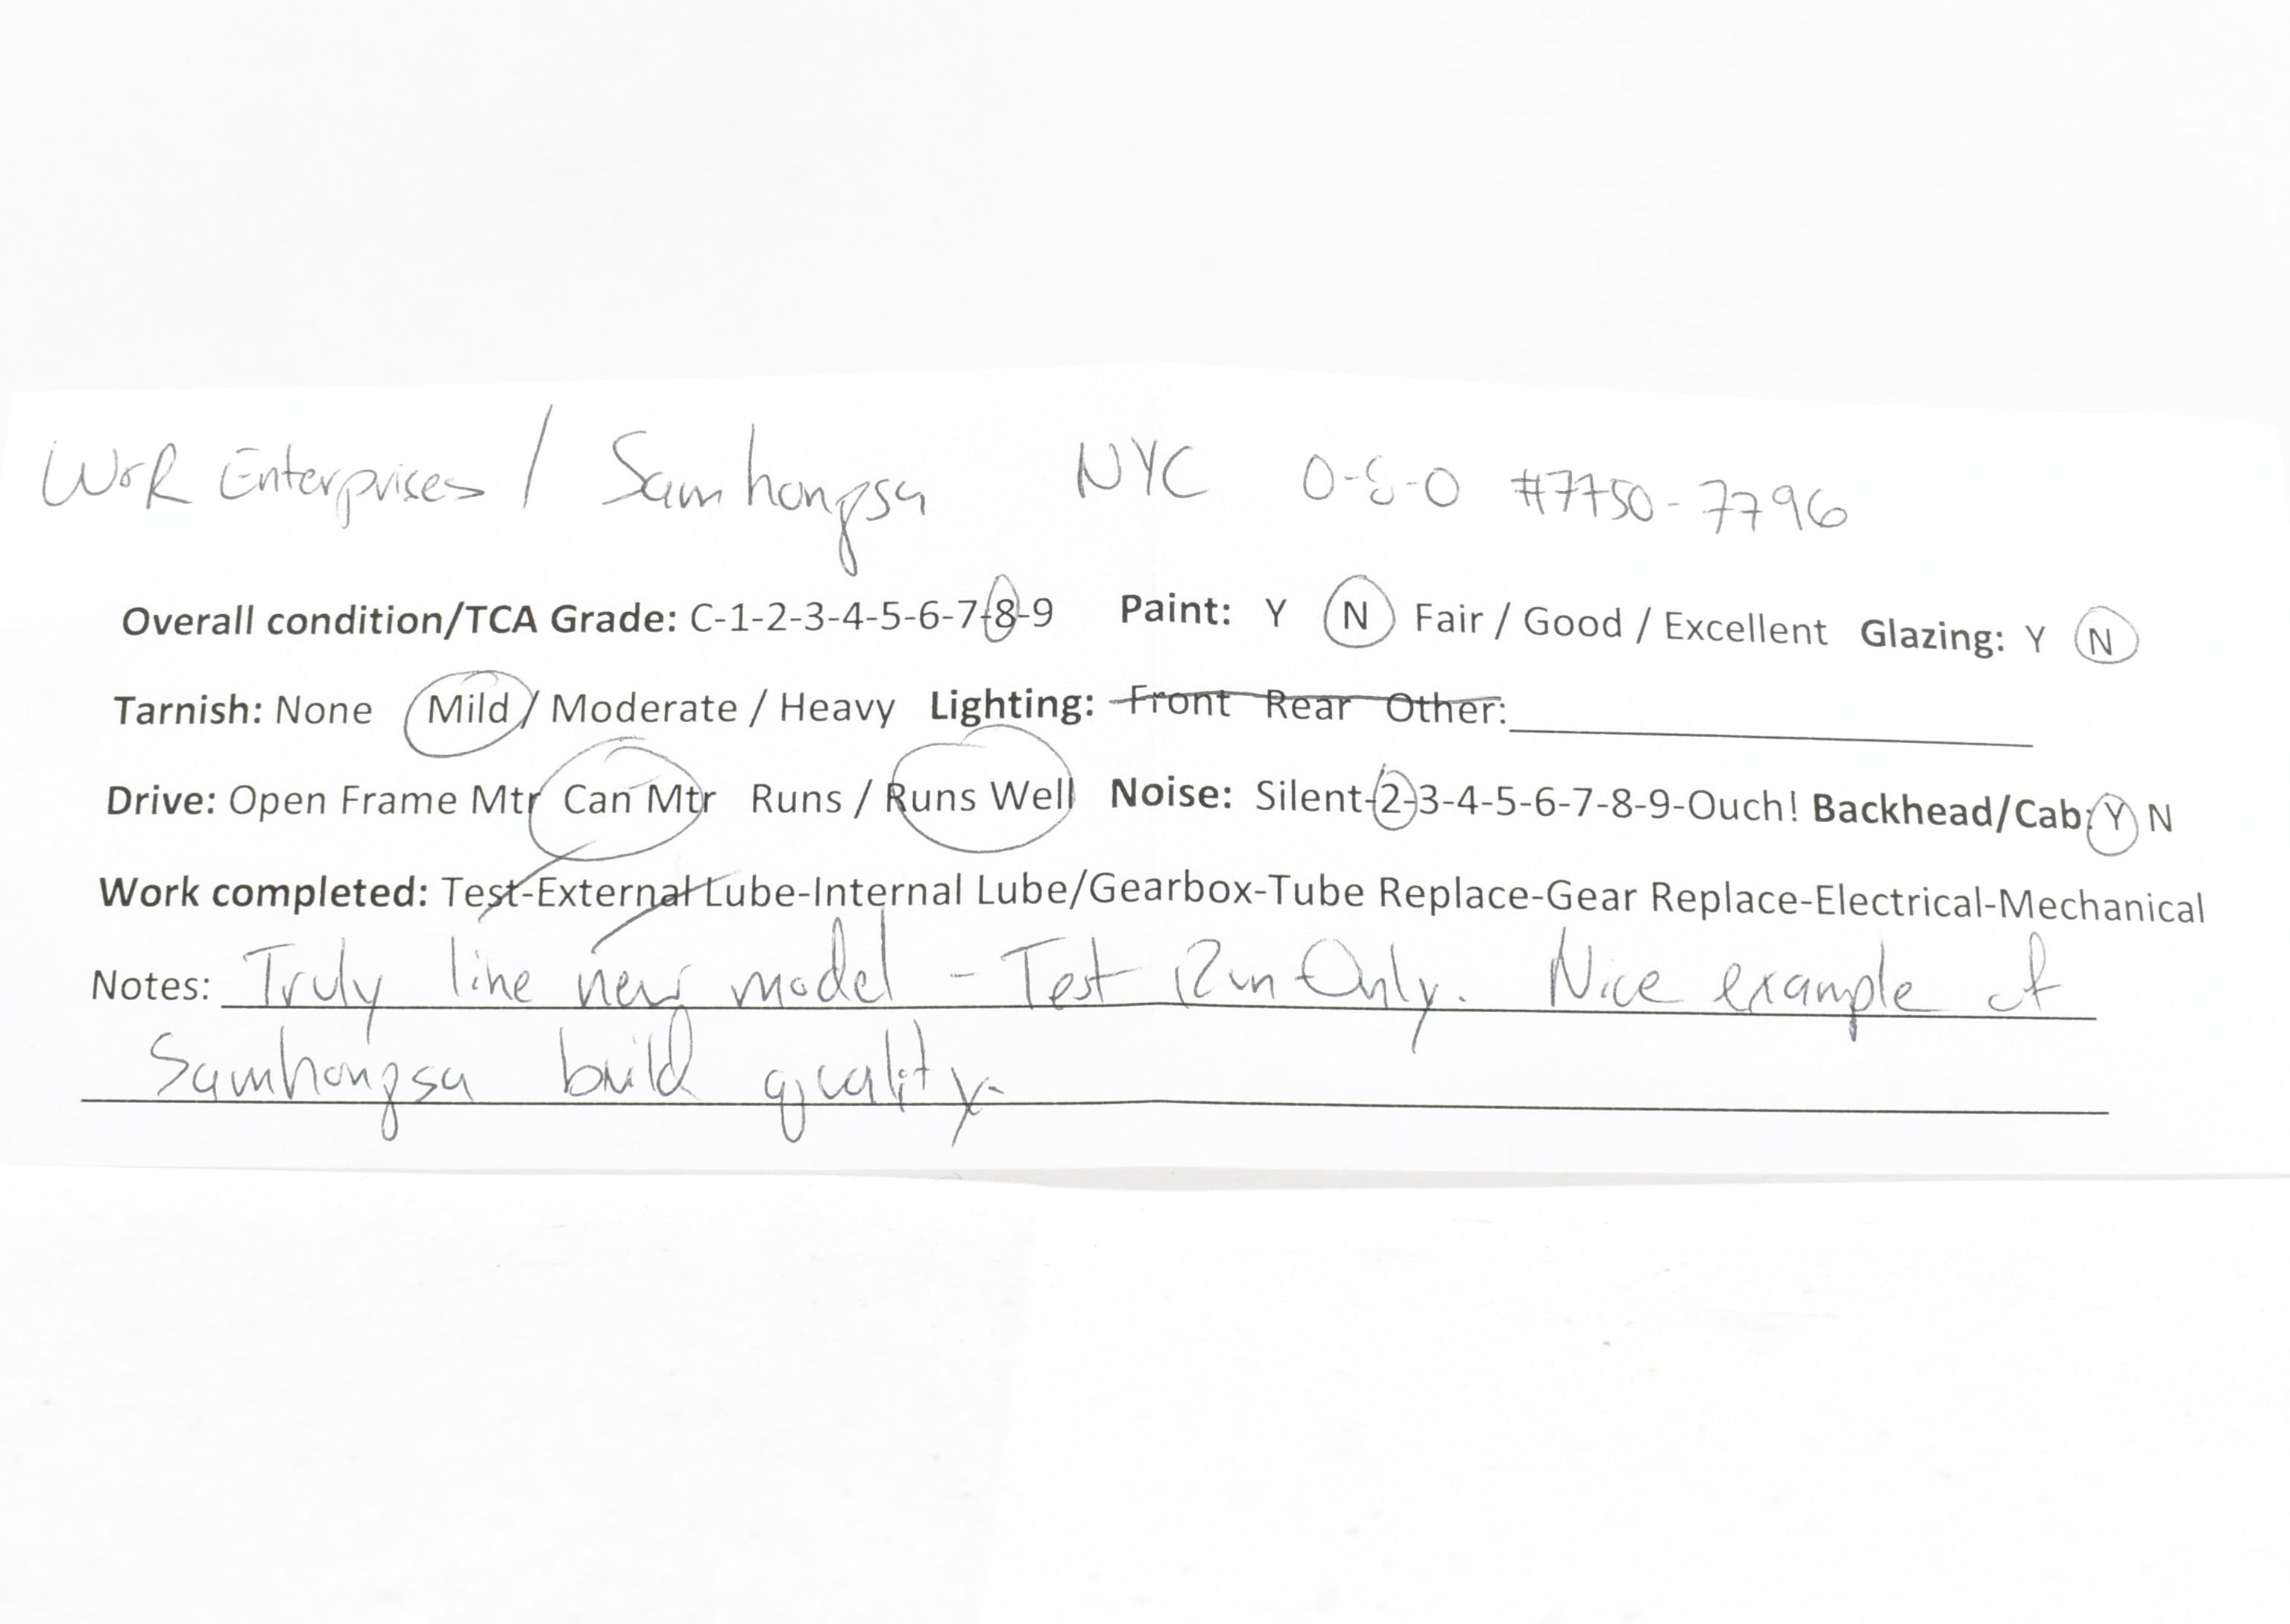 WrR Enterprises / Samhongsa NYC 0-8-0 #7750-7796
Overall condition/TCA Grade: C-1-2-3-4-5-6-7-8-9 Paint: Y N Fair / Good / Excellent Glazing: Y N
Tarnish: None Mild / Moderate / Heavy Lighting: Front Rear Other:
Drive: Open Frame Mtr Can Mtr Runs / Runs Well Noise: Silent-2-3-4-5-6-7-8-9-Ouch! Backhead/Cab: Y N
Work completed: Test-External Lube-Internal Lube/Gearbox-Tube Replace-Gear Replace-Electrical-Mechanical
Notes: Truly line new model - Test Run Only. Nice example of
Samhongsa build quality.